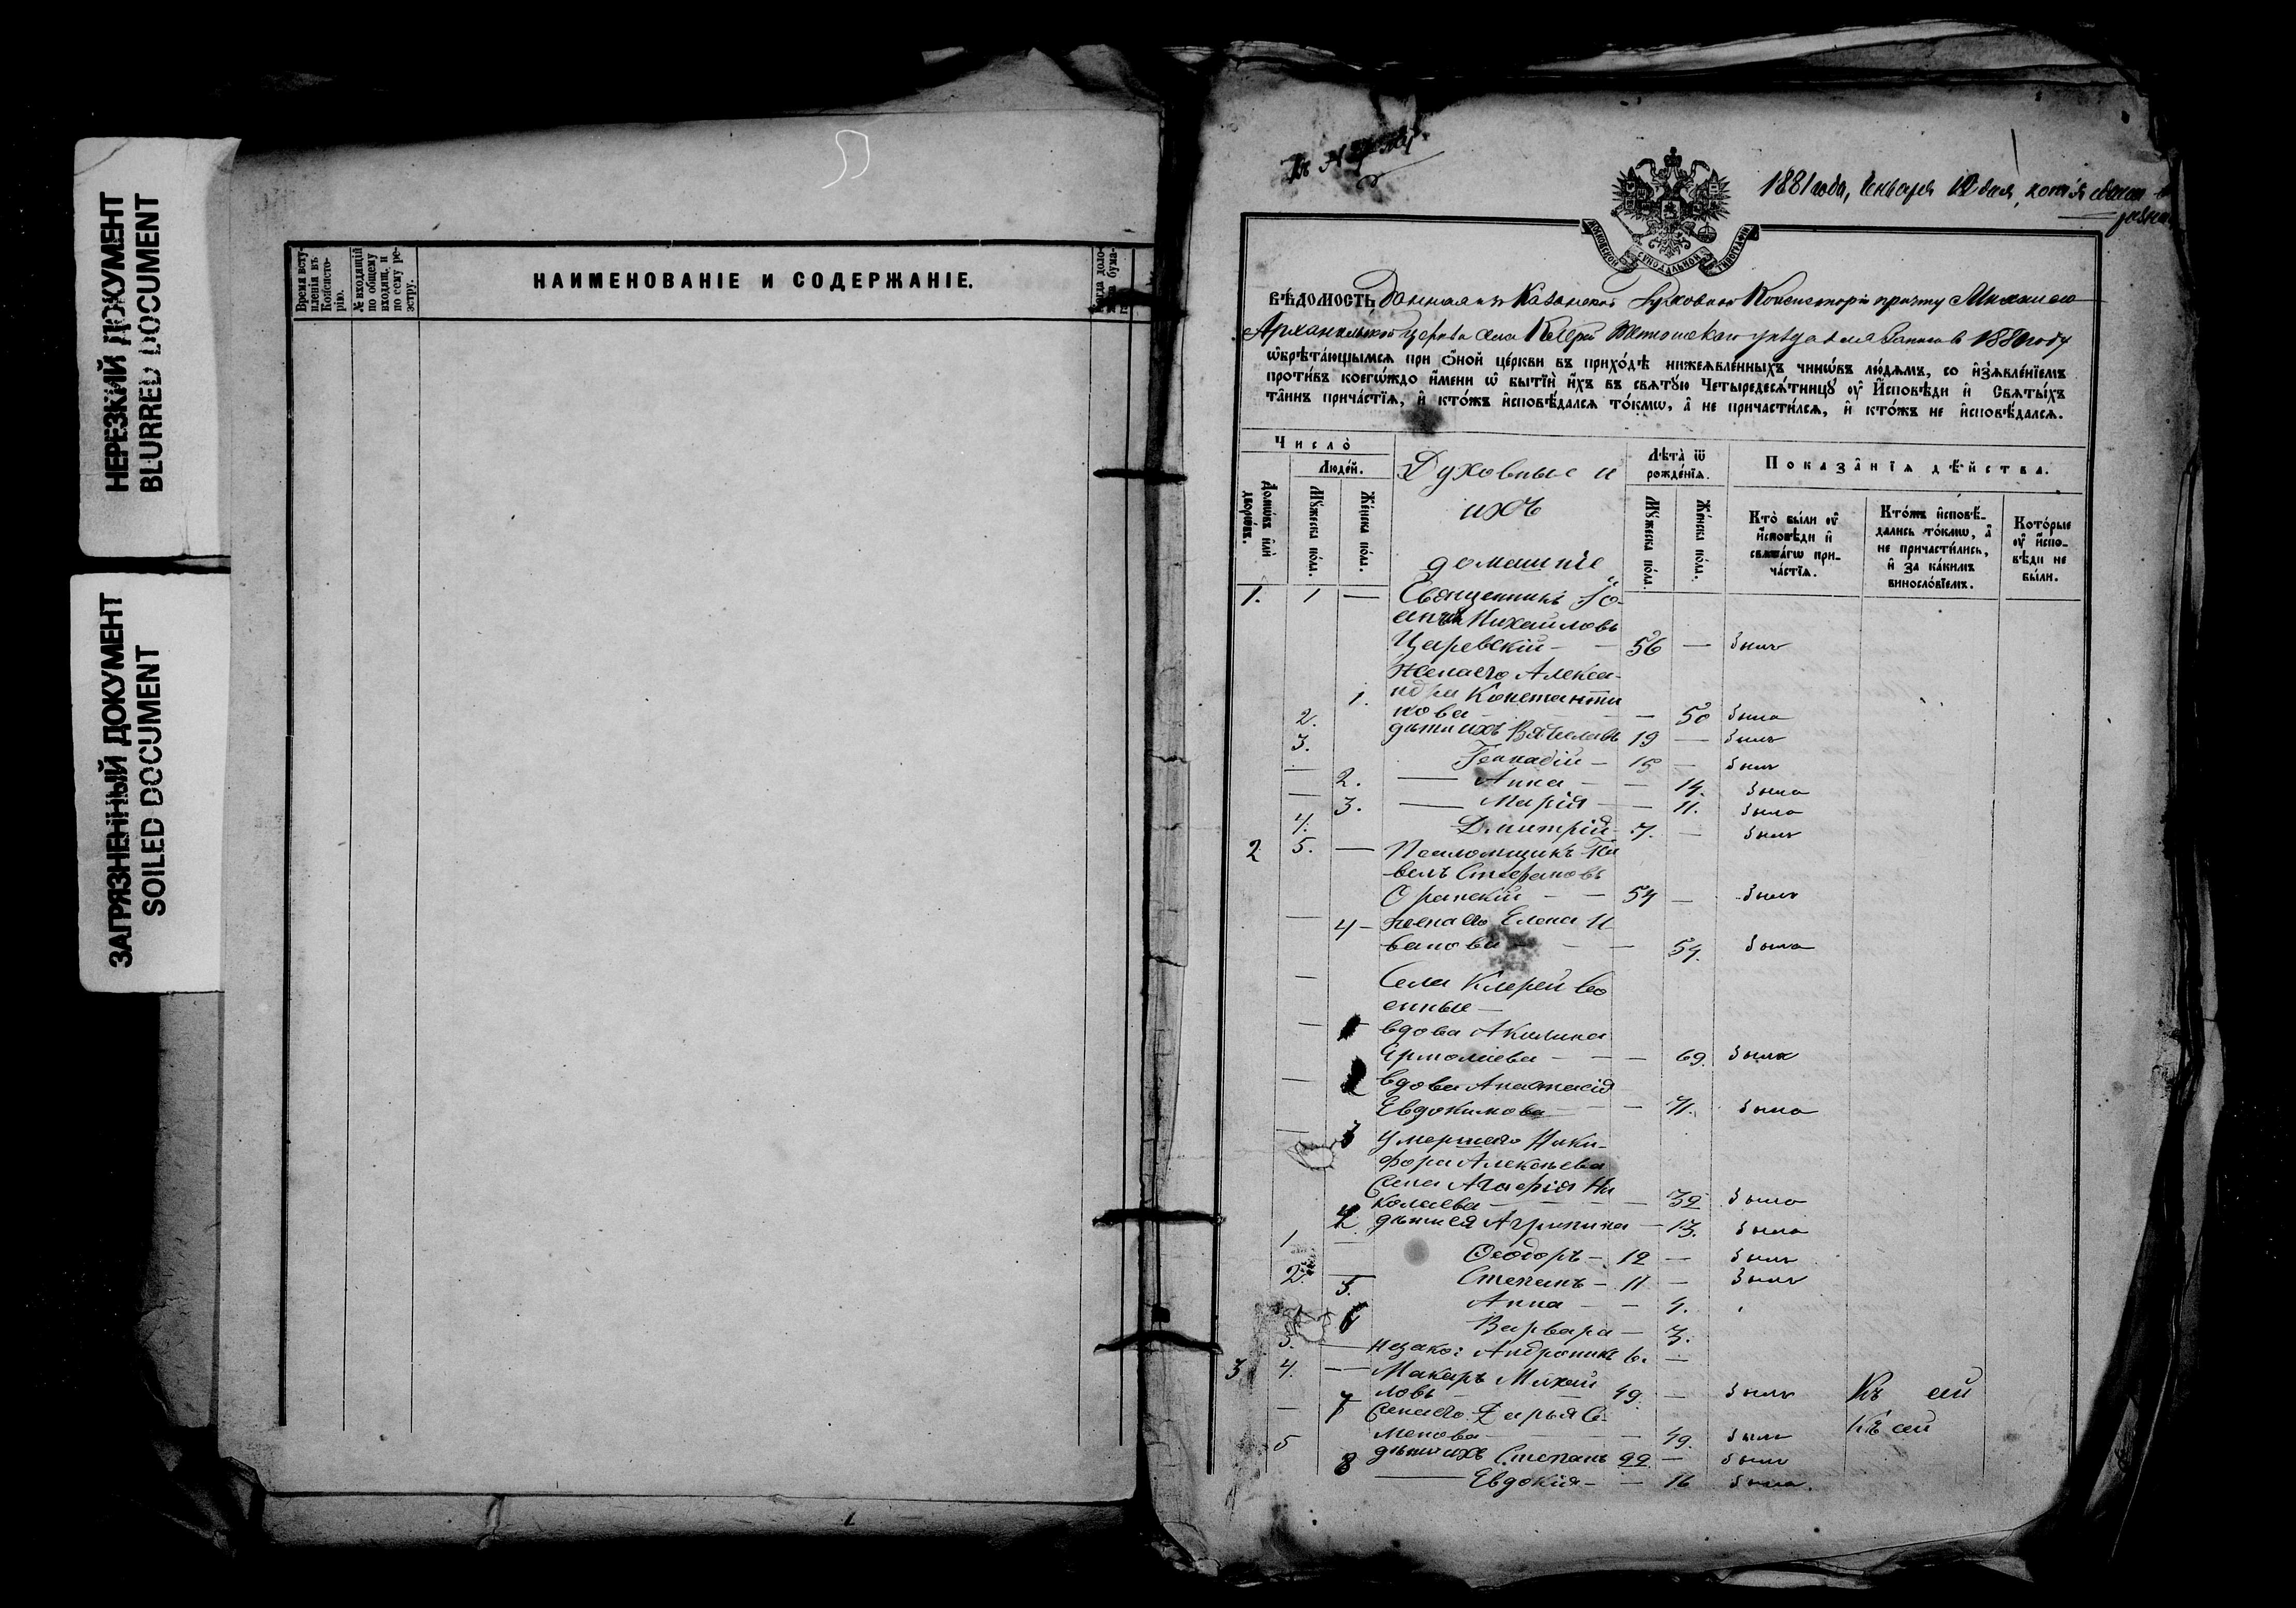 НЕРЕЗКИЙ ДОКУМЕНТ
BLURRED DOCUMENT
ЗАГРЯЗНЕННЫЙ ДОКУМЕНТ
SOILED DOCUMENT
Время всту-
пленія въ
Консисто-
рію.
№ входящій
по общему
входящ. и
по сему ре-
эстру.
НАИМЕНОВАНІЕ И СОДЕРЖАНІЕ.
Когда доло-
бума-
1881 года, Января 12 дня, копія
МОСКОВСКОЙ СѴНОДАЛЬНОЙ ТИПОГРАФІИ
ВѢДОМОСТЬ Данная изъ Казанской Духовной Консисторіи причту Михаило
Архангельской церкви села Клерей Тетюшскаго уѣзда для записи въ 1880 году
ѡ҆брѣта́ющымсѧ при ѻ҆́ной це́ркви въ прихо́дѣ нижеѧвле́нныхъ чинѡ́въ лю́дѧмъ, со и҆з̾ѧвле́нїемъ
проти́въ коегѡ́ждо и҆́мени ѡ҆ бытїѝ и҆́хъ въ свѧту́ю Четыредесѧ́тницꙋ ᲂу҆ И҆́сповѣди и҆ Свѧты́хъ
та̑инъ прича́стїѧ, и҆ кто́жъ и҆сповѣ́далсѧ то́кмѡ, а҆ не причасти́лсѧ, и҆ кто́жъ не и҆сповѣ́далсѧ.
Число̀
Люде́й.
Домѡ́въ и҆лѝ дворѡ́въ.
Мꙋ́жеска по́ла.
Же́нска по́ла.
Духовные и
ихъ
домашніе
Лѣта̀ ѿ рожде́нїѧ.
Мꙋ́жеска по́ла.
Же́нска по́ла.
Показа̑нїѧ дѣ́йства.
Кто̀ бы́ли ᲂу҆ и҆́сповѣди и҆ свѧта́гѡ при-ча́стїѧ.
Кто́жъ и҆сповѣ́-дались то́кмѡ, а҆ не причасти́лись, и҆ за ка́кимъ виносло́вїемъ.
Кото́рые ᲂу҆ и҆́спо-вѣди не бы́ли.
1. 1 — Священникъ Іо-
аннъ Михаиловъ
Царевскій — 56 — былъ
Жена его Алекса-
1. ндра Константи
нова — 50 была
2. дѣти ихъ Вячеславъ 19 — былъ
3. Геннадій — 15 — былъ
— 2. — Анна — 14. была
— 3. — Марія — 11. была
4. Дмитрій — 7. — былъ
2 5. — Псаломщикъ Па
велъ Стефановъ
Оранскій — 54 — былъ
— 4 — Жена его Елена И
ванова — 54. была
— Села Клерей во
енные —
— вдова Акилина
Ермолаева — 69. была
— вдова Анастасія
Евдокимова — 71. была
— 3 умершего Ники-
фора Алексѣева
Жена Агафія Ни
колаева — 32 была
4 дѣти ея Агрипина — 13. была
1 — Ѳеодоръ — 12 — былъ
2 — Степанъ — 11 — былъ
5. Анна — 4.
6 Варвара — 3.
3. — незако: Андроникъ 6. —
3 4. — Макаръ Михай
ловъ — 49. — былъ
— 7 Жена его Дарья Се
менова — 49. была
5 дѣти ихъ Степанъ 22 — былъ
8 — Евдокія — 16 была.